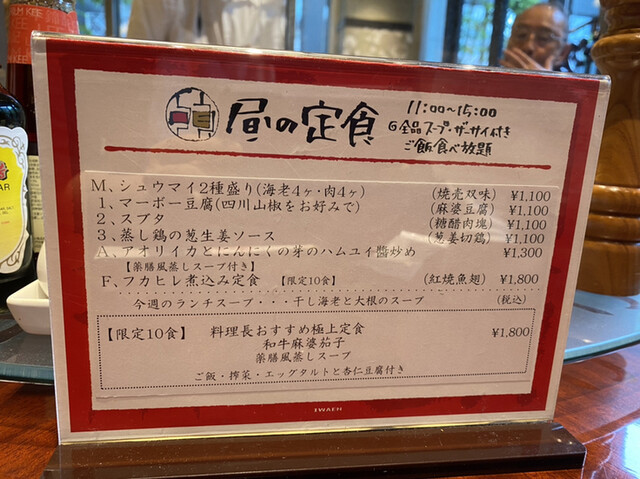 昼の定食
11:00~15:00
全品スープ・ザーサイ付き
ご飯食べ放題
M、シュウマイ2種盛り(海老4ヶ・肉4ヶ) (焼売双味) ¥1,100
1、マーボー豆腐(四川山椒をお好みで) (麻婆豆腐) ¥1,100
2、スブタ (糖醋肉塊) ¥1,100
3、蒸し鶏の葱生姜ソース (葱姜切鶏) ¥1,100
A、アオリイカとにんにくの芽のハムユイ醬炒め ¥1,300
【薬膳風蒸しスープ付き】
F、フカヒレ煮込み定食 【限定10食】 (紅焼魚翅) ¥1,800
今週のランチスープ・・・干し海老と大根のスープ (税込)
【限定10食】 料理長おすすめ極上定食 ¥1,800
和牛麻婆茄子
薬膳風蒸しスープ
ご飯・搾菜・エッグタルトと杏仁豆腐付き